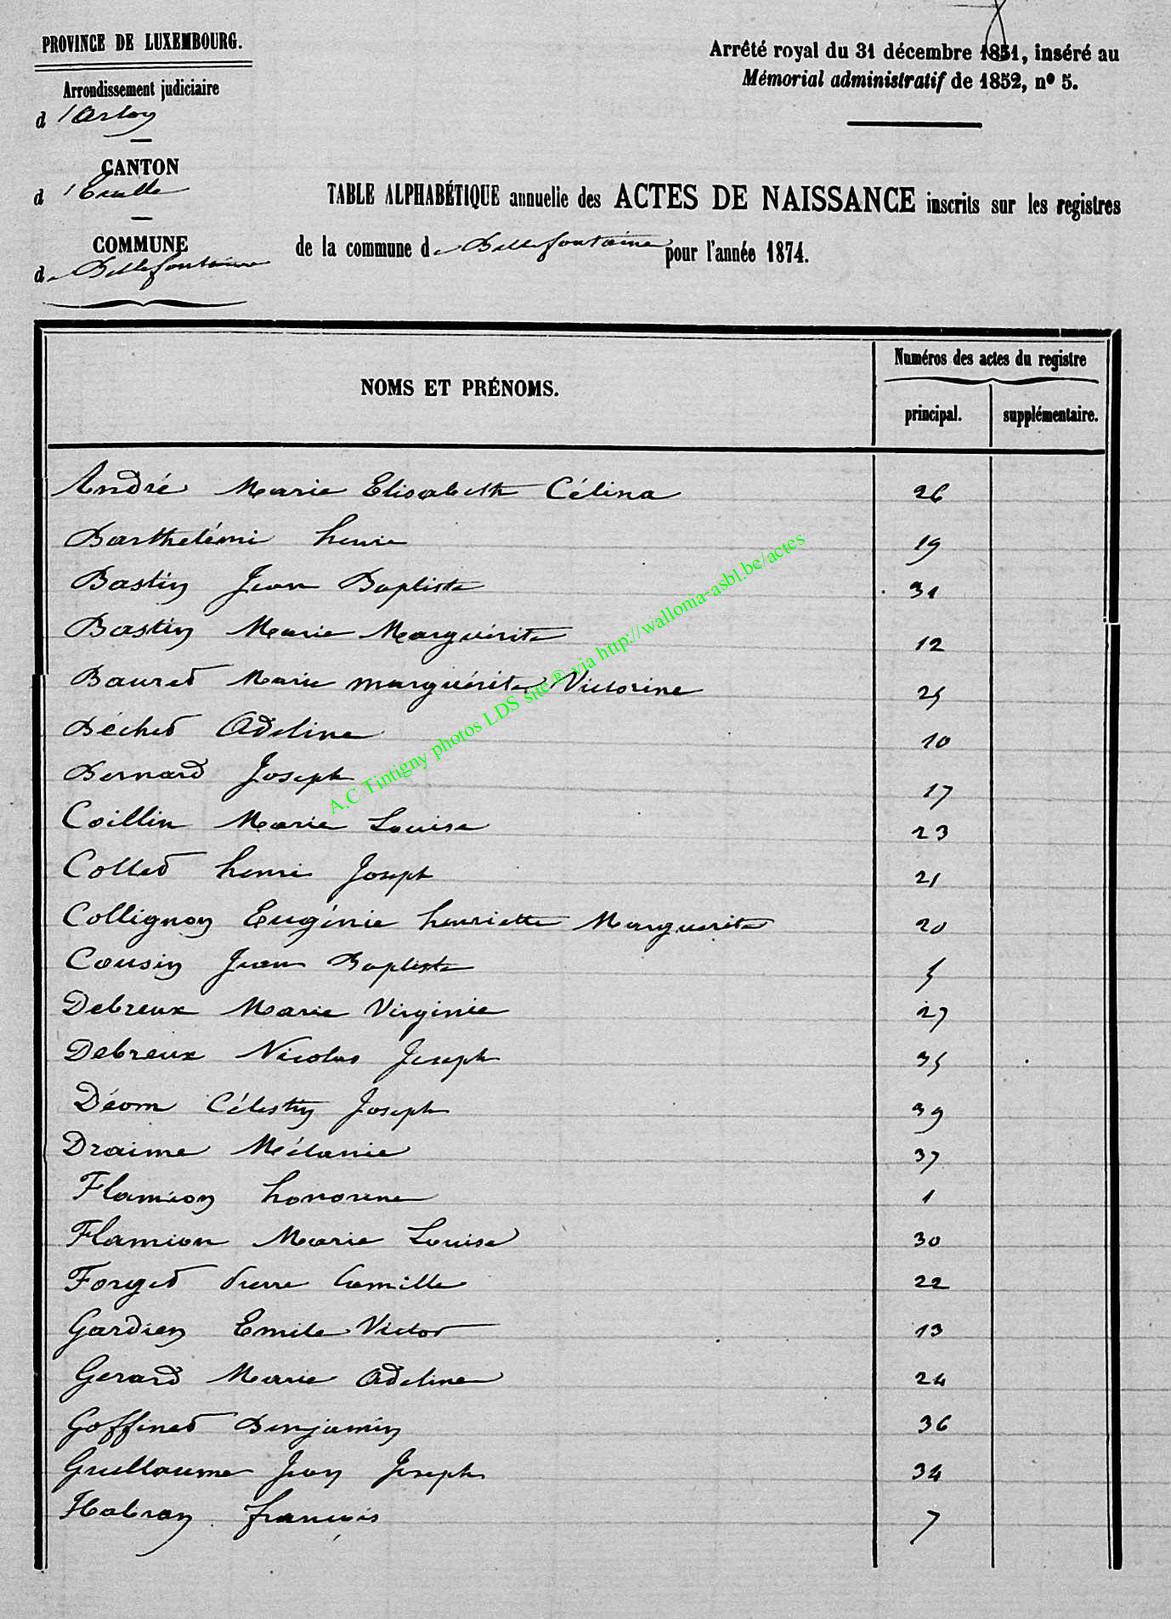 PROVINCE DE LUXEMBOURG.
Arrêté royal du 31 décembre 1851, inséré au
Mémorial administratif de 1852, nº 5.
Arrondissement judiciaire
d'Arlon
CANTON
d'Etalle
COMMUNE
de Bellefontaine
TABLE ALPHABÉTIQUE annuelle des ACTES DE NAISSANCE inscrits sur les registres
de la commune de Bellefontaine pour l'année 1874.
NOMS ET PRÉNOMS.
Numéros des actes du registre
principal. supplémentaire.
André Marie Elisabeth Célina 26
Barthelémi henri 19
Bastin Jean Baptiste 31
Bastin Marie Marguérite 12
Bauret Marie marguérite Victorine 25
Béchet Adeline 10
Bernard Joseph 17
Coillin Marie Louise 23
Collet henri Joseph 21
Collignon Eugénie henriette Marguerite 20
Cousin Jean Baptiste 5
Debreux Marie Virginie 27
Debreux Nicolas Joseph 35
Déom Célestin Joseph 39
Draime Mélanie 37
Flamion honorine 1
Flamion Marie Louise 30
Forget Pierre Camille 22
Gardien Emile Victor 13
Gerard Marie Adeline 24
Goffinet Benjamin 36
Guillaume Jean Joseph 34
Habran françois 7
A.C Tintigny photos LDS site ® via http://wallonia-asbl.be/actes